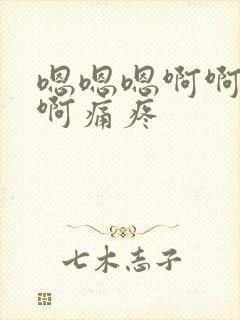 嗯嗯嗯啊啊
啊痛疼
七木志子